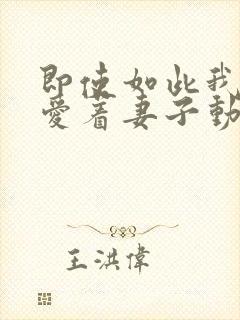 即使如此我
愛着妻子動
王洪偉